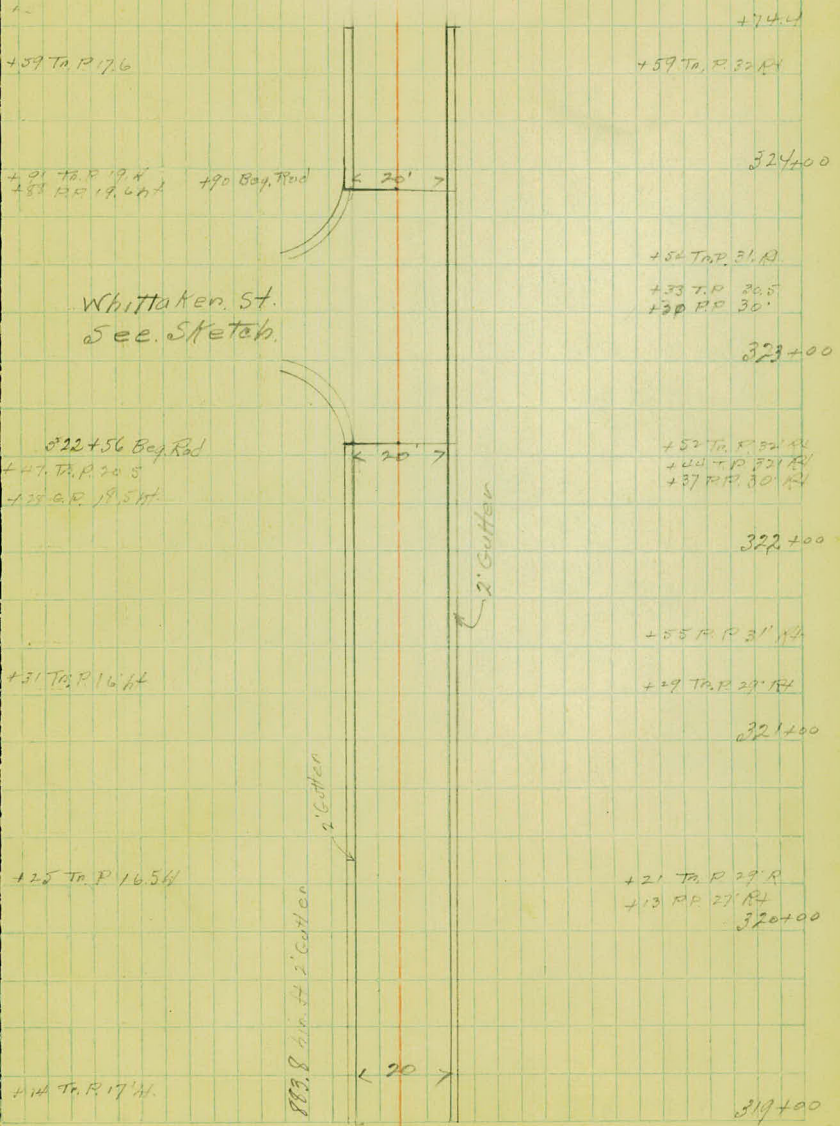 +74.4
+59 Tr. P. 17.6
+59 Tr. P. 32 Rt
324+00
+91 Tr. P. 19
+88 P.P. 19.6 Lft
+90 Beg. Rad
20'
+54 Tr. P. 31 Rt
+33 T.P. 30.5
+30 P.P. 30'
Whittaker St.
See Sketch.
323+00
322+56 Beg. Rad
20'
+52 Tr. P. 32' Rt
+44 T.P. 32' Rt
+37 P.P. 30' Rt
+47 Tr. P. 20.5
+28 G.P. 18.5 Lft
322+00
2' Gutter
+55 P.P. 31' Rt
+31 Tr. P. 16' Lft
+29 Tr. P. 29' Rt
321+00
2' Gutter
+25 Tr. P. 16.5 Lft
+21 Tr. P. 29' R
+13 P.P. 27' Rt
320+00
883.8 Lin. ft 2' Gutter
20
+14 Tr. P. 17' Lft.
319+00